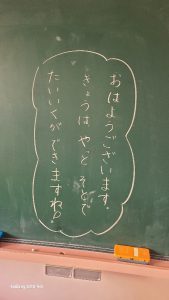 おはようございます。
きょうは、やっとそとで
たいいくができますね。